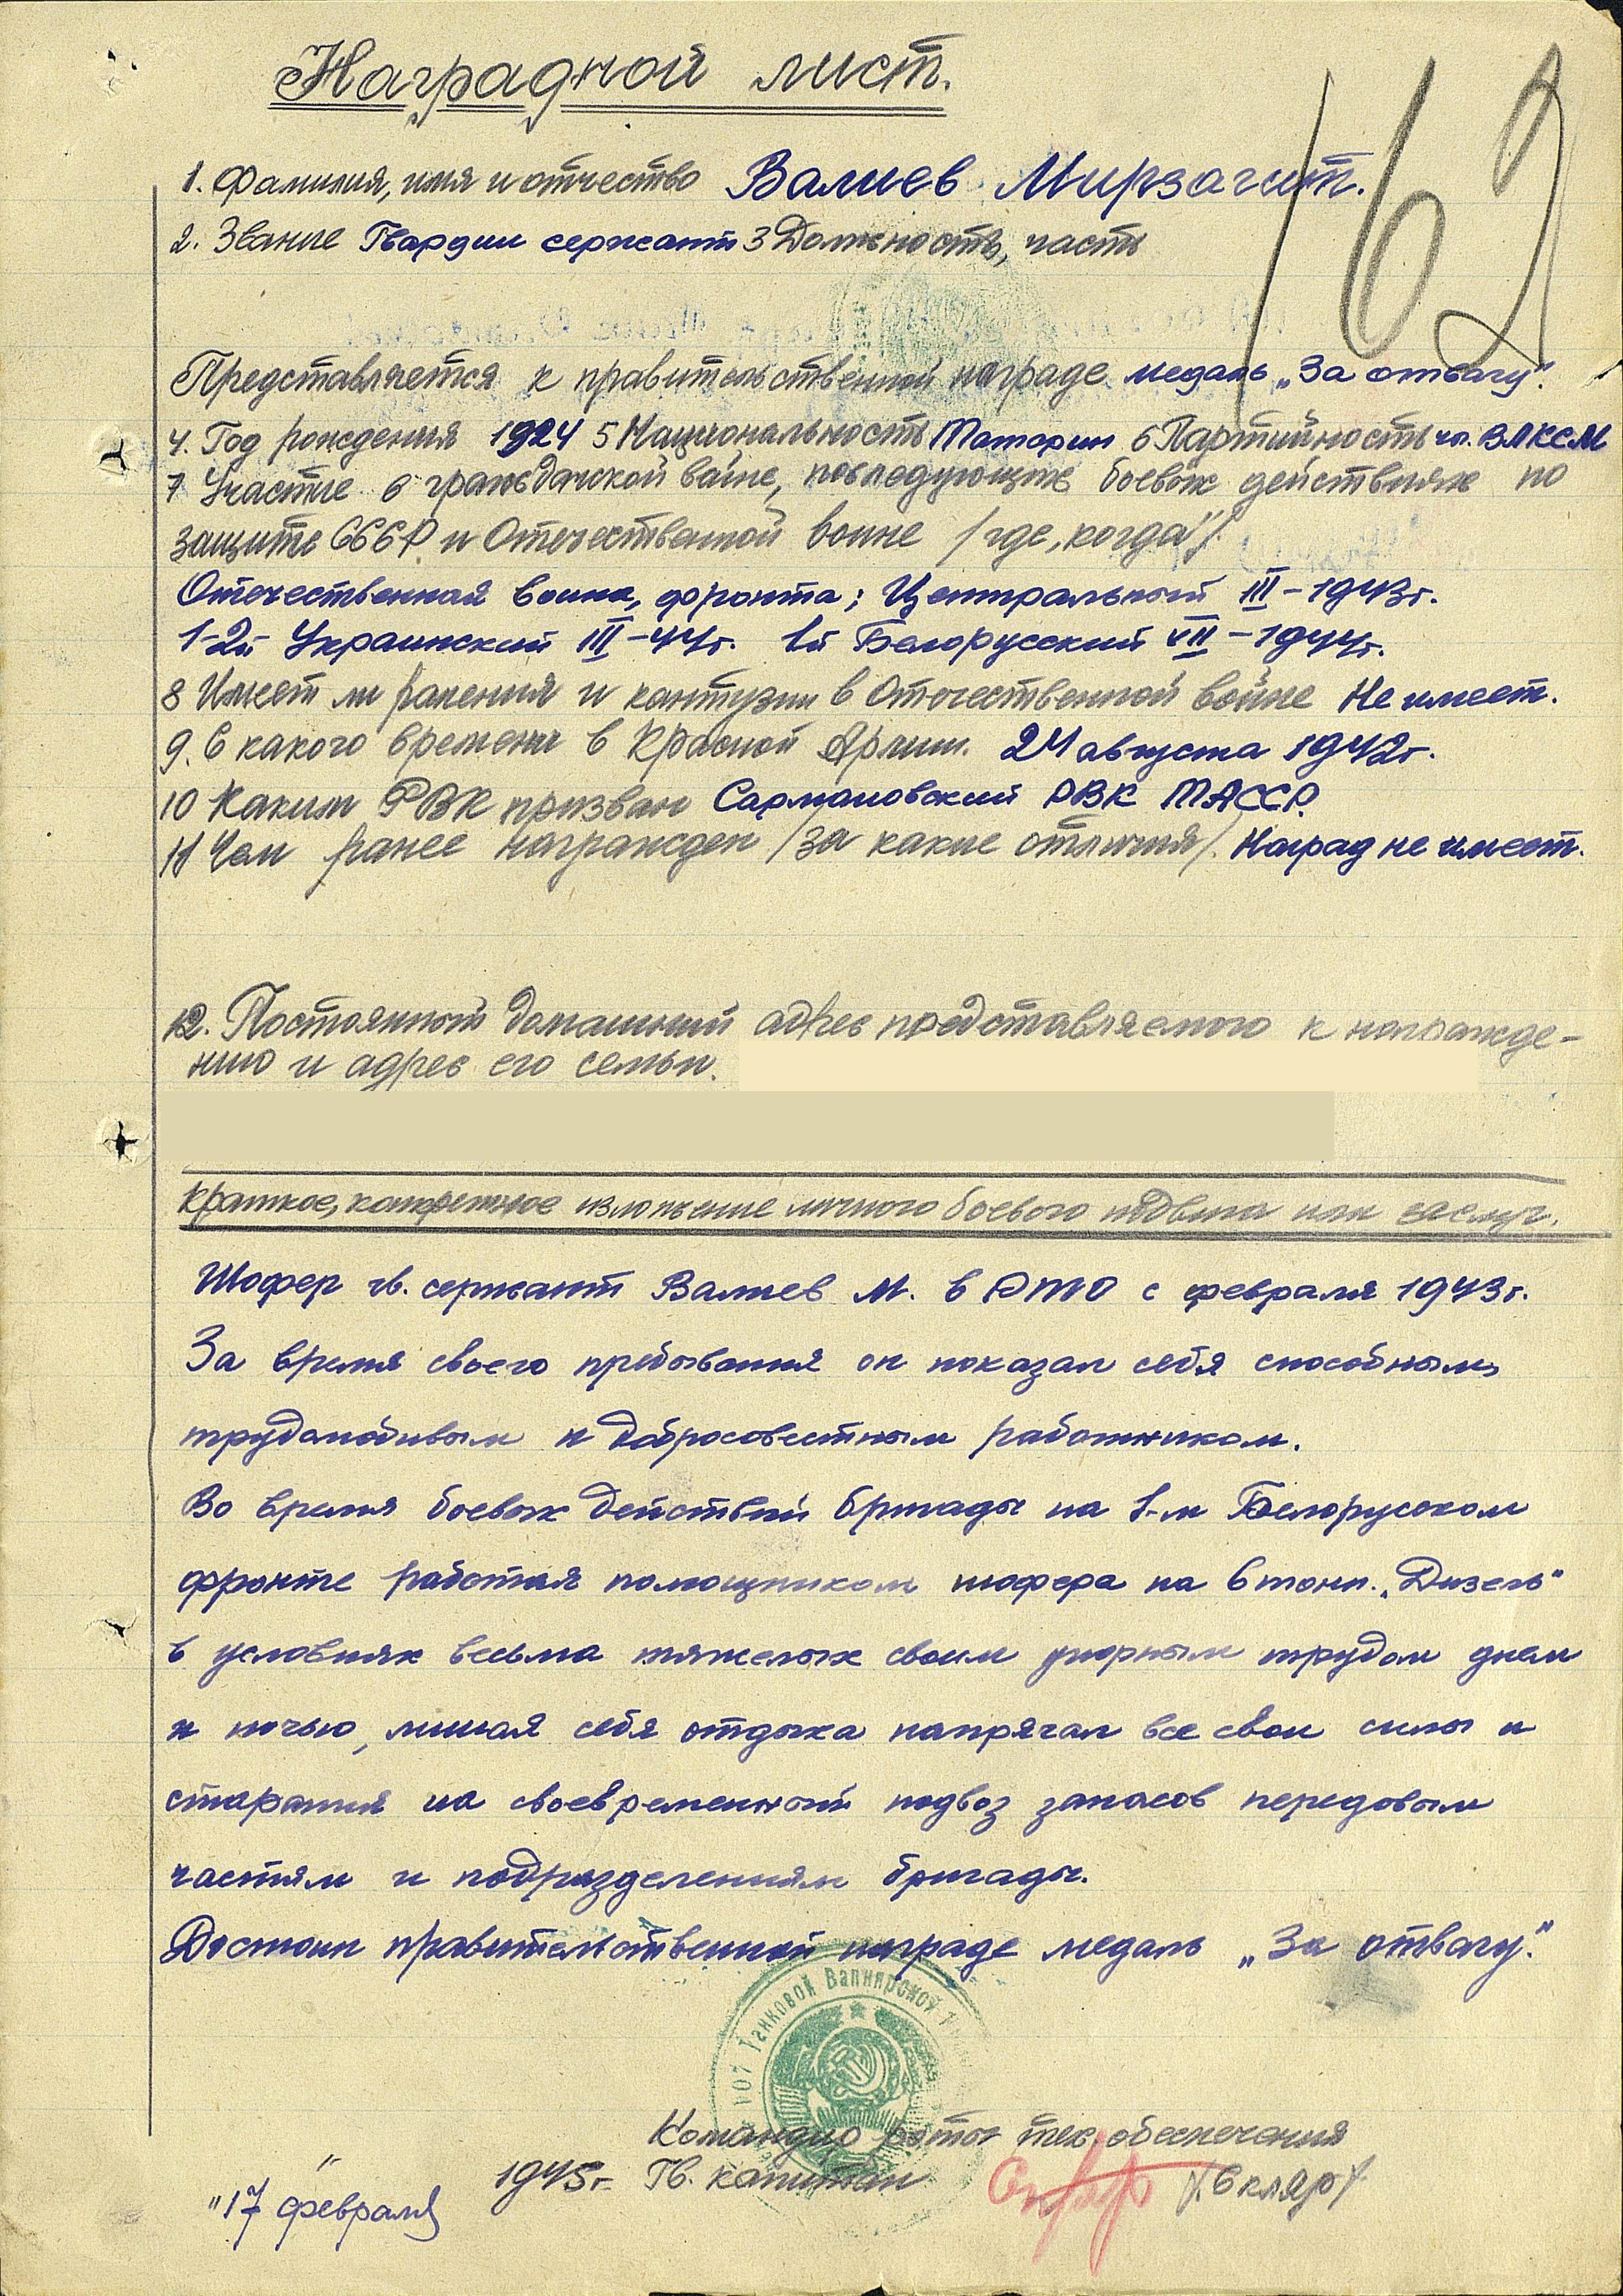 Наградной лист.
162
1. Фамилия, имя и отчество Валиев Мирзагит.
2. Звание Гвардии сержант 3 Должность, часть
Представляется к правительственной награде медаль „За отвагу".
4. Год рождения 1924 5 Национальность Татарин 6 Партийность чл. ВЛКСМ
7 Участие в гражданской войне, последующих боевых действиях по
защите СССР и Отечественной войне /где, когда/
Отечественная война, фронта; Центральный III – 1943г.
1-2й Украинский III – 44г. 1й Белорусский VII – 1944г.
8 Имеет ли ранения и контузии в Отечественной войне Не имеет.
9. С какого времени в Красной Армии. 24 августа 1942г.
10 Каким РВК призван Сармановский РВК ТАССР.
11 Чем ранее награжден /за какие отличия/. Наград не имеет.
12. Постоянный домашний адрес представляемого к награжде-
нию и адрес его семьи.
Краткое, конкретное изложение личного боевого подвига или заслуг.
Шофер гв. сержант Валиев М. в РТО с февраля 1943г.
За время своего пребывания он показал себя способным,
трудолюбивым и добросовестным работником.
Во время боевых действий бригады на 1-м Белорусском
фронте работая помощником шофера на 6 тонн. „Дизель"
в условиях весьма тяжелых своим упорным трудом днем
и ночью, лишая себя отдыха напрягал все свои силы и
старания на своевременный подвоз запасов передовым
частям и подразделениям бригады.
Достоин правительственной награде медаль „За отвагу".
107 Танковой Вапнярской
Командир роты тех. обеспечения
"17" февраля 1945г. Гв. капитан /Скляр/